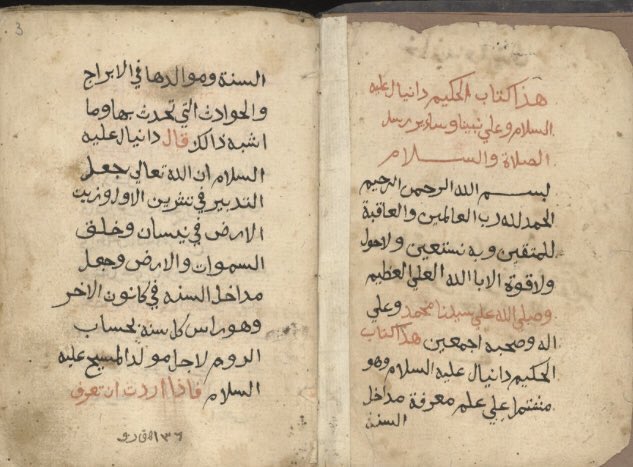 هذا كتاب الحكيم دانيال عليه
السلام وعلي نبينا وساير رسل
الصلاة والسلام
بسم الله الرحمن الرحيم
الحمد لله رب العالمين والعاقبة
للمتقين وبه نستعين ولاحول
ولا قوة الا باالله العلي العظيم
وصلي الله علي سيدنا محمد وعلي
اله وصحبه اجمعين هذا كتاب
الحكيم دانيال عليه السلام وهو
علي علم معرفة مداخل
السنة
3
السنة وموالدها في الابراج
والحوادث التي تحدث بها وما
اشبه ذالك قال دانيال عليه
السلام ان الله تعالي جعل
التدبير في تشرين الاول وزين
الارض في نيسان وخلق
السموات والارض وجعل
مداخل السنه في كانون الاخر
وهو راس كل سنه بحساب
الروم لاجل مولد المسيح عليه
السلام فاذا اردت ان تعرف